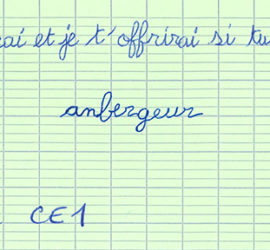 ai et je t'offrirai si tu
anbergeur
CE1